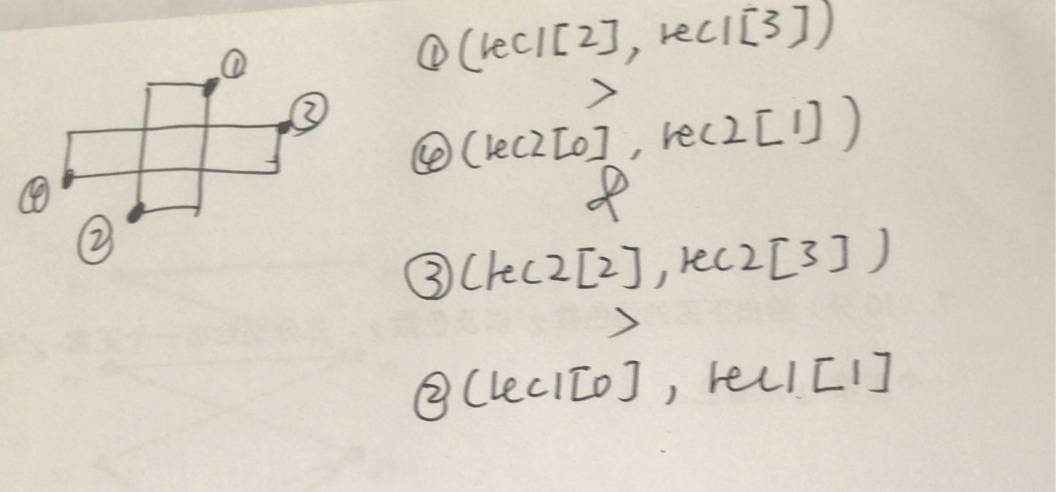 ①
③
④
②
①(rec1[2], rec1[3])
>
④(rec2[0], rec2[1])
&
③(rec2[2], rec2[3])
>
②(rec1[0], rec1[1]